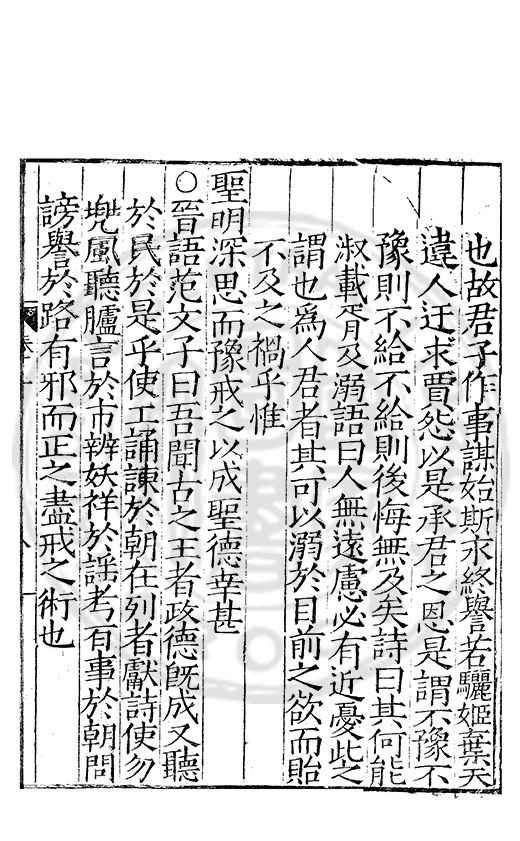 也故君子作事謀始斯永終譽若驪姬棄天
違人迂求賈怨以是承君之恩是謂不豫不
豫則不給不給則後悔無及矣詩曰其何能
淑載胥及溺語曰人無遠慮必有近憂此之
謂也為人君者其可以溺於目前之欲而貽
不及之禍乎惟
聖明深思而豫戒之以成聖德幸甚
○晉語范文子曰吾聞古之王者政德旣成又聽
於民於是乎使工誦諫於朝在列者獻詩使勿
兠風聽臚言於市辨妖祥於謠考百事於朝問
謗譽於路有邪而正之盡戒之術也
卷十